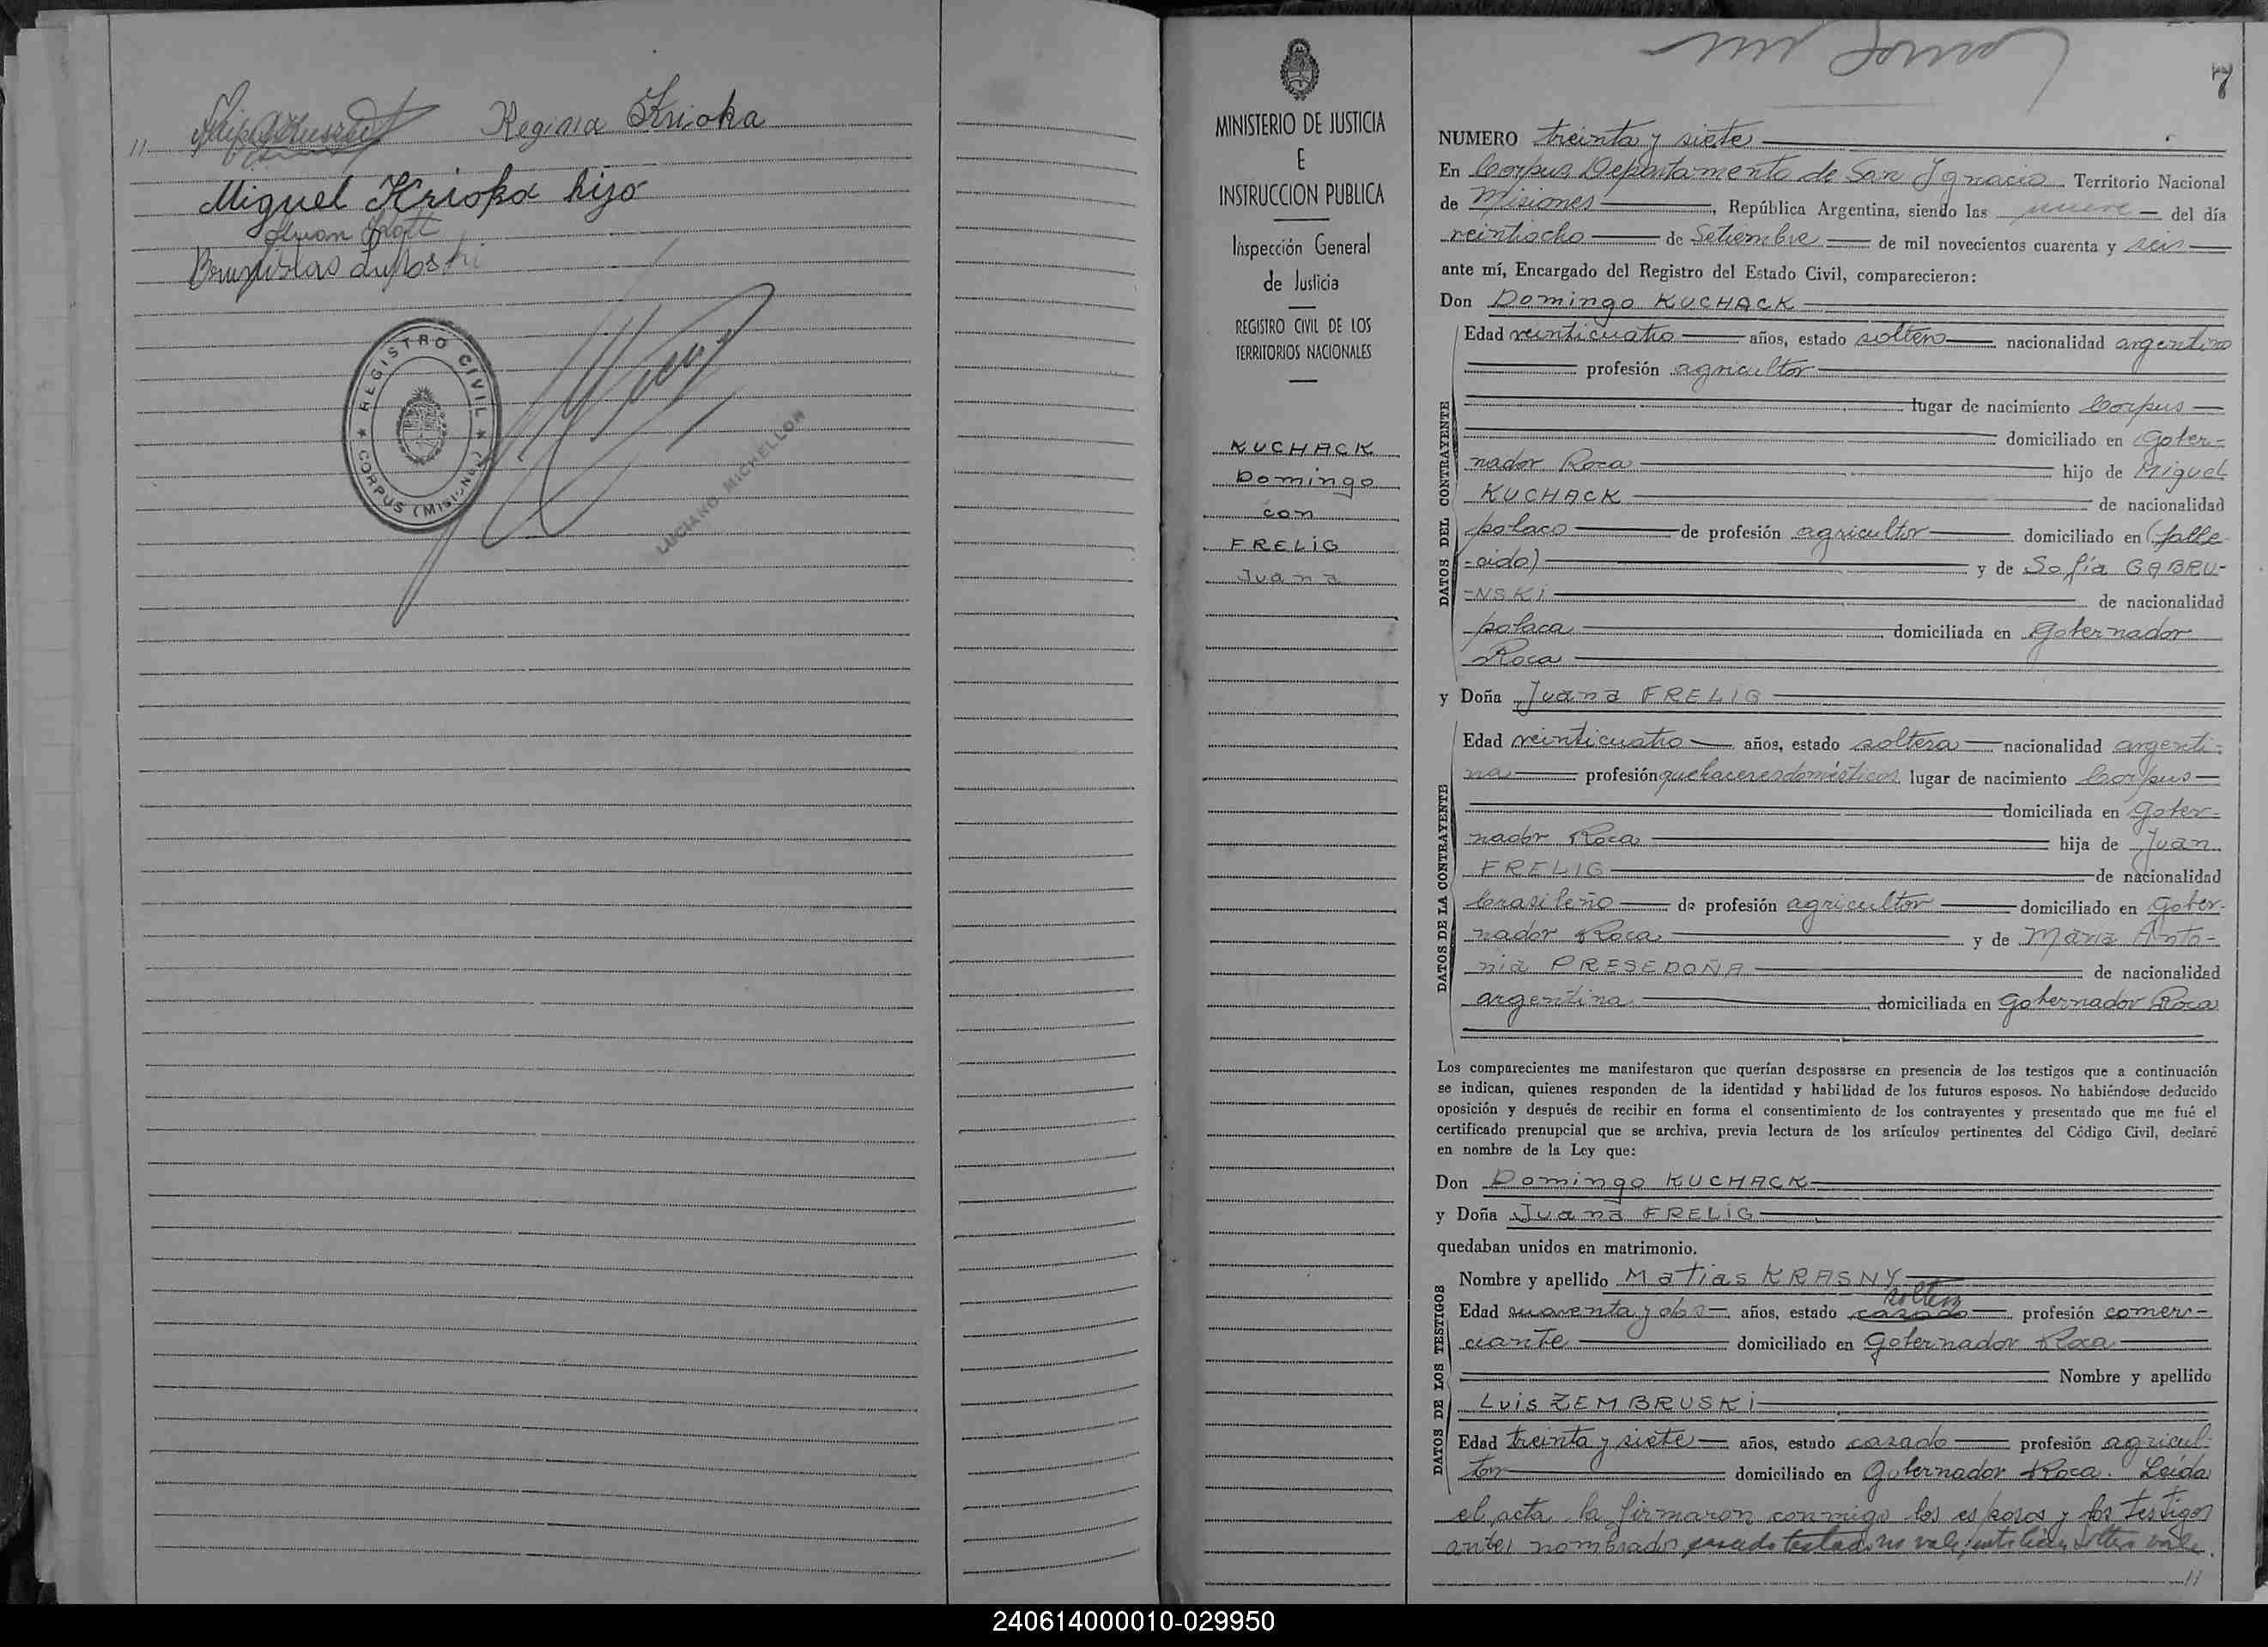 Regina Krioka
Miguel Krioka hijo
Juan
REGISTRO CIVIL
CORPUS (MISIONES)
LUCIANO MICHELLON
MINISTERIO DE JUSTICIA
E
INSTRUCCION PUBLICA
Inspección General
de Justicia
REGISTRO CIVIL DE LOS
TERRITORIOS NACIONALES
KUCHACK
Domingo
con
FRELIG
Juana
7
NUMERO treinta y siete
En Corpus Departamento de San Ignacio Territorio Nacional
de Misiones, República Argentina, siendo las nueve del día
veintiocho de Setiembre de mil novecientos cuarenta y seis
ante mí, Encargado del Registro del Estado Civil, comparecieron:
Don Domingo KUCHACK
DATOS DEL CONTRAYENTE
Edad veinticuatro años, estado soltero nacionalidad argentino
profesión agricultor
lugar de nacimiento Corpus
domiciliado en Gober-
nador Roca hijo de Miguel
KUCHACK de nacionalidad
polaco de profesión agricultor domiciliado en (falle-
-cido) y de Sofía GABRU-
-NSKI de nacionalidad
polaca domiciliada en Gobernador
Roca
y Doña Juana FRELIG
DATOS DE LA CONTRAYENTE
Edad veinticuatro años, estado soltera nacionalidad argenti-
na profesión quehaceres domésticos lugar de nacimiento Corpus
domiciliada en Gober-
nador Roca hija de Juan
FRELIG de nacionalidad
brasileño de profesión agricultor domiciliado en Gober-
nador Roca y de María Anto-
nia PRESEDOÑA de nacionalidad
argentina domiciliada en Gobernador Roca
Los comparecientes me manifestaron que querían desposarse en presencia de los testigos que a continuación
se indican, quienes responden de la identidad y habilidad de los futuros esposos. No habiéndose deducido
oposición y después de recibir en forma el consentimiento de los contrayentes y presentado que me fué el
certificado prenupcial que se archiva, previa lectura de los artículos pertinentes del Código Civil, declaré
en nombre de la Ley que:
Don Domingo KUCHACK
y Doña Juana FRELIG
quedaban unidos en matrimonio.
DATOS DE LOS TESTIGOS
Nombre y apellido Matias KRASNY
soltero
Edad cuarenta y dos años, estado casado profesión comer-
ciante domiciliado en Gobernador Roca
Nombre y apellido
Luis ZEMBRUSKI
Edad treinta y siete años, estado casado profesión agricul-
tor domiciliado en Gobernador Roca. Leída
el acta la firmaron conmigo los esposos y los testigos
antes nombrados testado no vale, soltero vale.
240614000010-029950